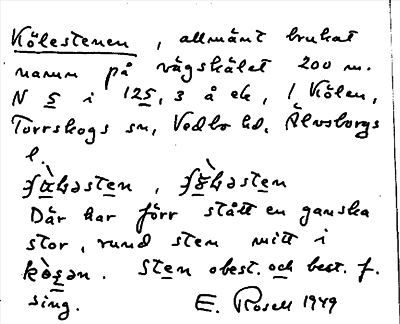 Kölestenen, allmänt brukat
namn på vägskälet 200 m.
N 5 i 125, 3 å ek, i Kölen,
Torrskogs sn, Vedbo hd, Älvsborgs
l.
Där har förr stått en ganska
stor, rund sten mitt i
sten obest. och best. f.
sing. E. Rosell 1949